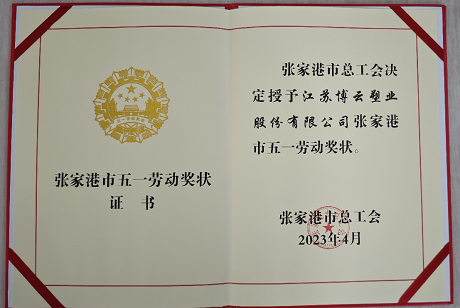 张家港市五一劳动奖状
证 书
张家港市总工会决
定授予江苏博云塑业
股份有限公司张家港
市五一劳动奖状。
张家港市总工会
2023年4月